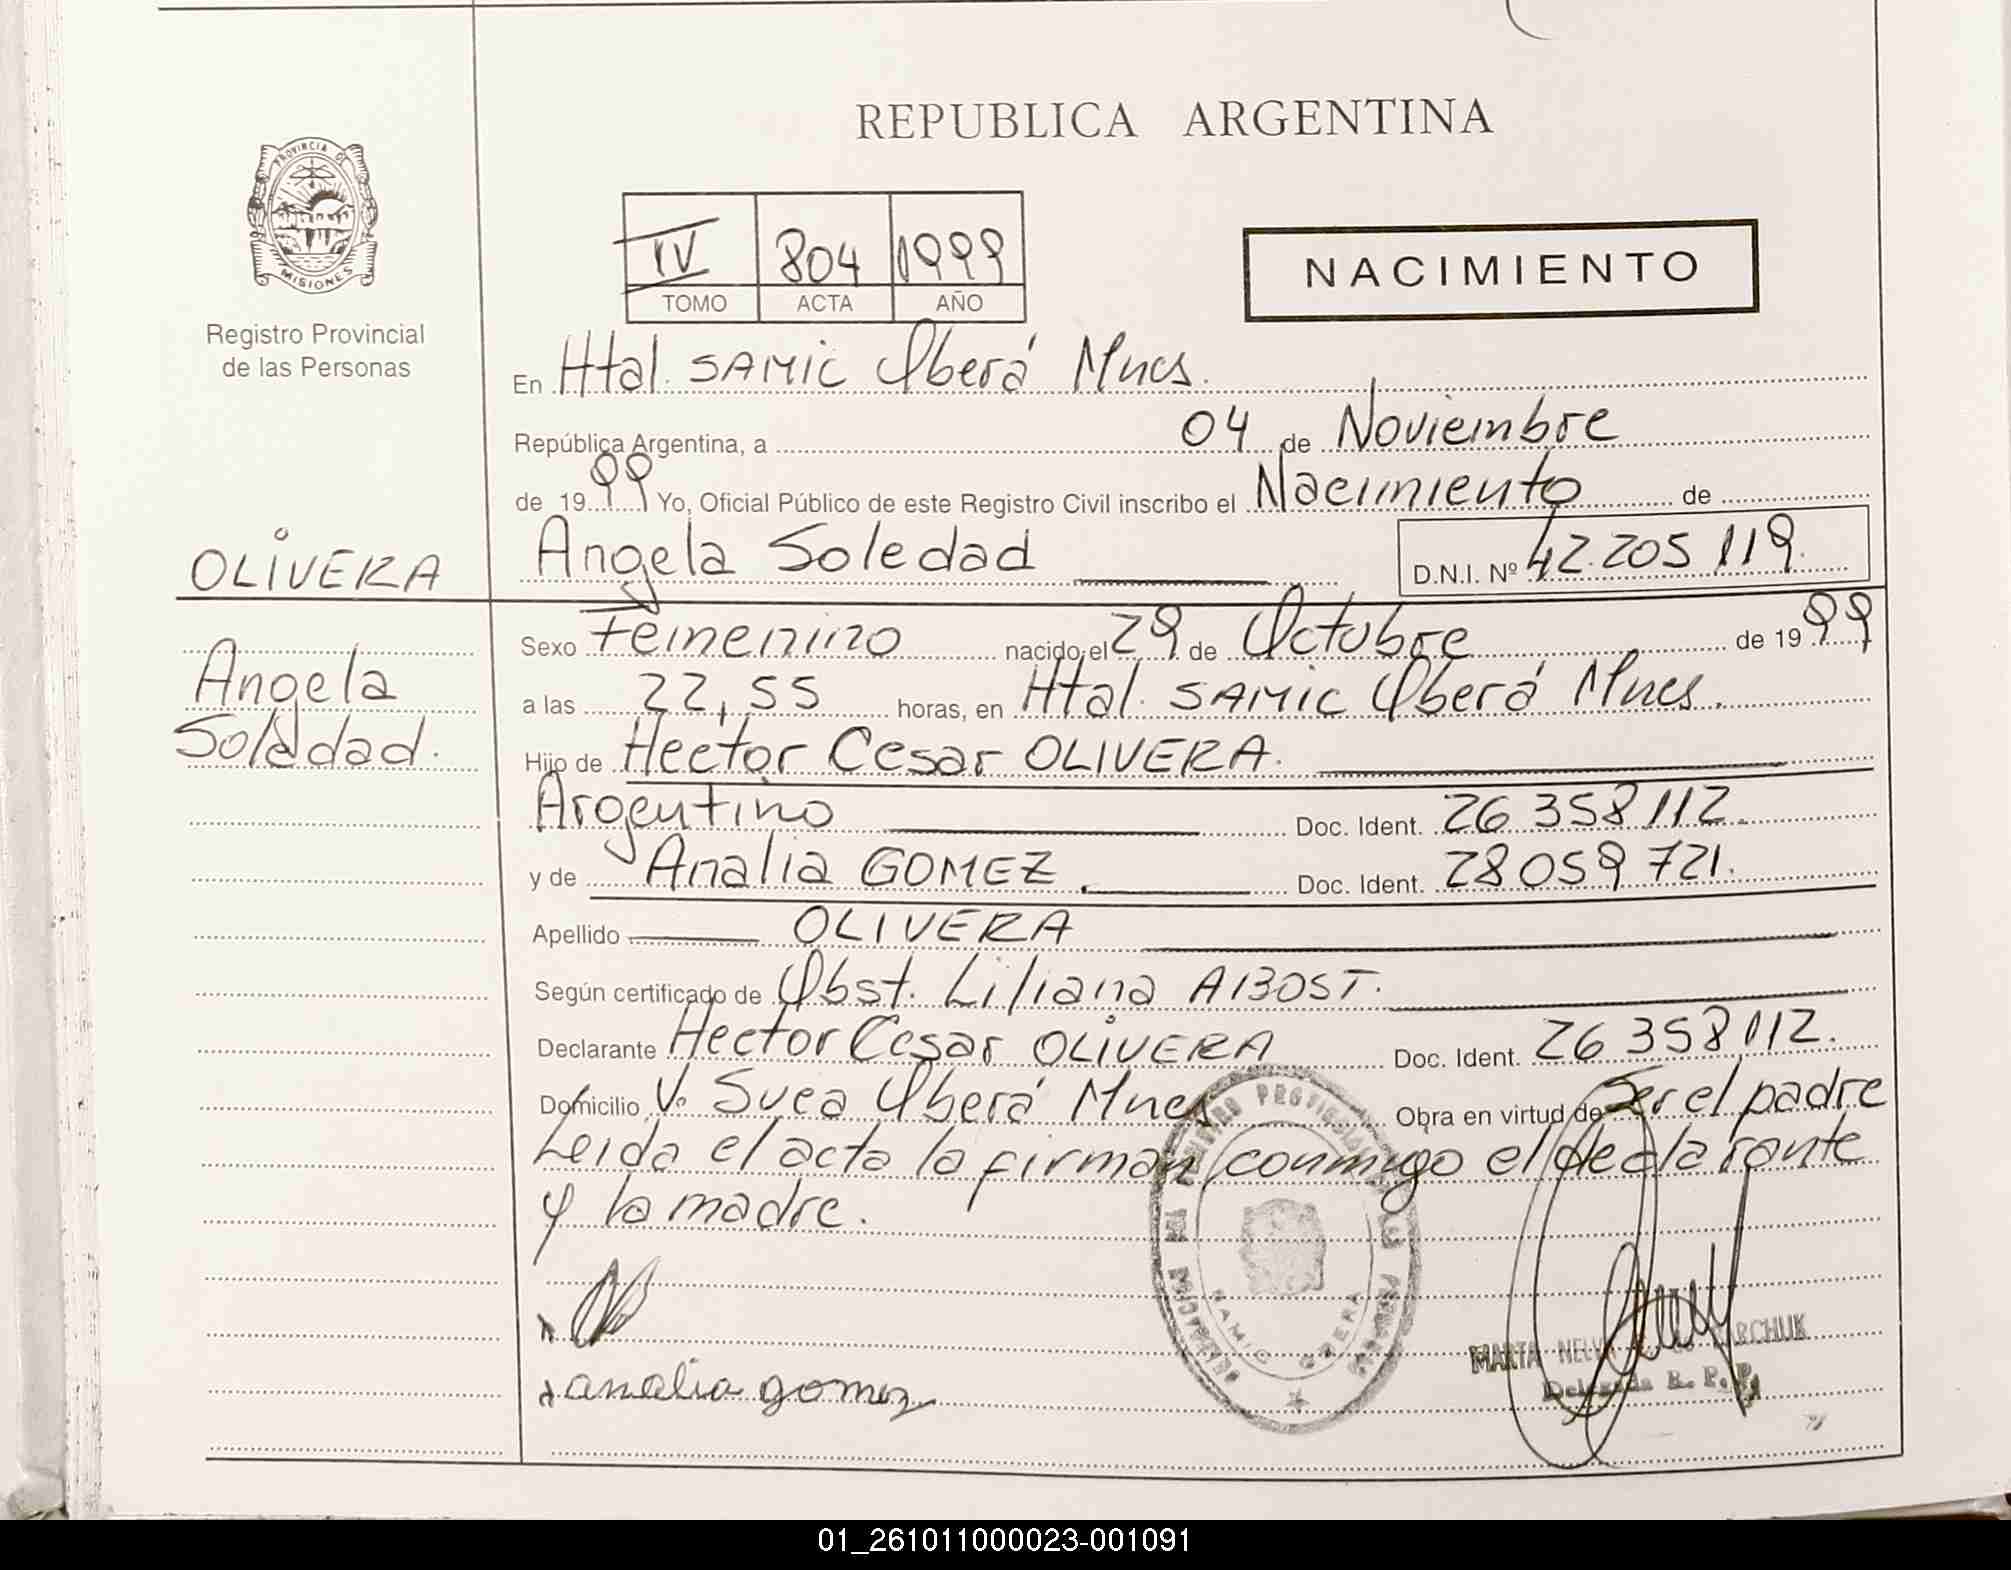 REPUBLICA ARGENTINA
PROVINCIA DE
MISIONES
Registro Provincial
de las Personas
IV 804 1999
TOMO ACTA AÑO
NACIMIENTO
En Htal. SAMIC Oberá Mnes.
República Argentina, a 04 de Noviembre
de 1999 Yo, Oficial Público de este Registro Civil inscribo el Nacimiento de
OLIVERA Angela Soledad D.N.I. Nº 42.205 119.
Sexo Femenino nacido el 29 de Octubre de 1999
Angela
a las 22,55 horas, en Htal. SAMIC Oberá Mnes.
Soledad.
Hijo de Hector Cesar OLIVERA.
Argentino Doc. Ident. 26 358 112.
y de Analia GOMEZ. Doc. Ident. 28 059 721.
Apellido OLIVERA
Según certificado de Obst. Liliana ABOST.
Declarante Hector Cesar OLIVERA Doc. Ident. 26 358 112.
Domicilio Vº Svea Oberá Mnes Obra en virtud de Ser el padre
Leida el acta la firman conmigo el declarante
y la madre.
analia gomez
SAMIC OBERA
MARTA
Delegada R. P. P.
01_261011000023-001091